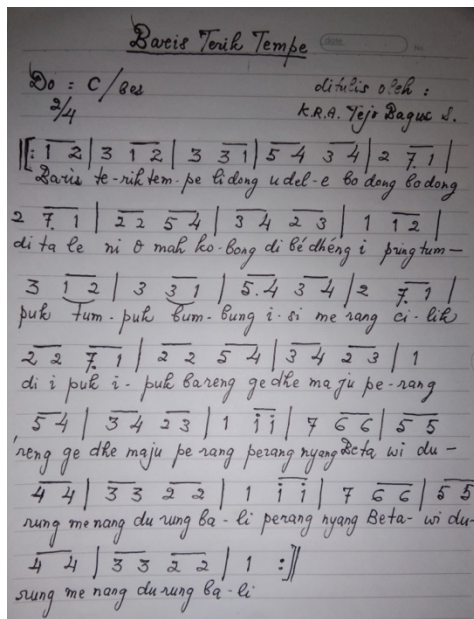 Baris Terik Tempe
date
No.
Do : C / bes
ditulis oleh :
2/4
K.R.A. Tejo Bagus S.
‖: 1 2 | 3 1 2 | 3 3 1 | 5 4 3 4 | 2 7. 1 |
Baris te-rik tem-pe lidong udel-e bo dong bodong
2 7. 1 | 2 2 5 4 | 3 4 2 3 | 1 1 2 |
di ta le ni o mah ko-bong di bé dhéng i pring tum-
3 1 2 | 3 3 1 | 5.4 3 4 | 2 7. 1 |
puk tum-puk bum-bung i-si me rang ci-lik
2 2 7. 1 | 2 2 5 4 | 3 4 2 3 | 1
di i puk i-puk bareng ge dhe ma ju pe-rang
5 4 | 3 4 2 3 | 1 i i | 7 6 6 | 5 5
reng ge dhe maju pe rang perang nyang Beta wi du-
4 4 | 3 3 2 2 | 1 i i | 7 6 6 | 5 5
rung me nang du rung ba-li perang nyang Beta-wi du-
4 4 | 3 3 2 2 | 1 :‖
rung me nang du rung ba-li